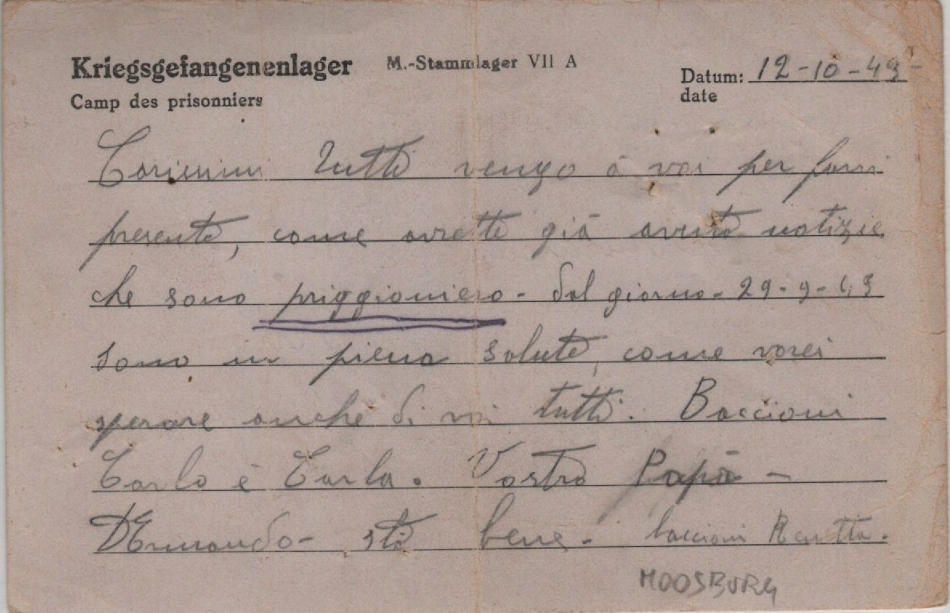 Kriegsgefangenenlager M.-Stammlager VII A
Camp des prisonniers
Datum: 12-10-43-
date
Carissimi Tutti vengo à voi per farvi
presente, come avrette già avuto notizie
che sono priggioniero - dal giorno - 29-9-43
sono in piena salute, come vorei
sperare anche di voi tutti. Baccioni
Carlo è Carla. Vostro Papà -
stà bene - baccioni
MOOSBURG